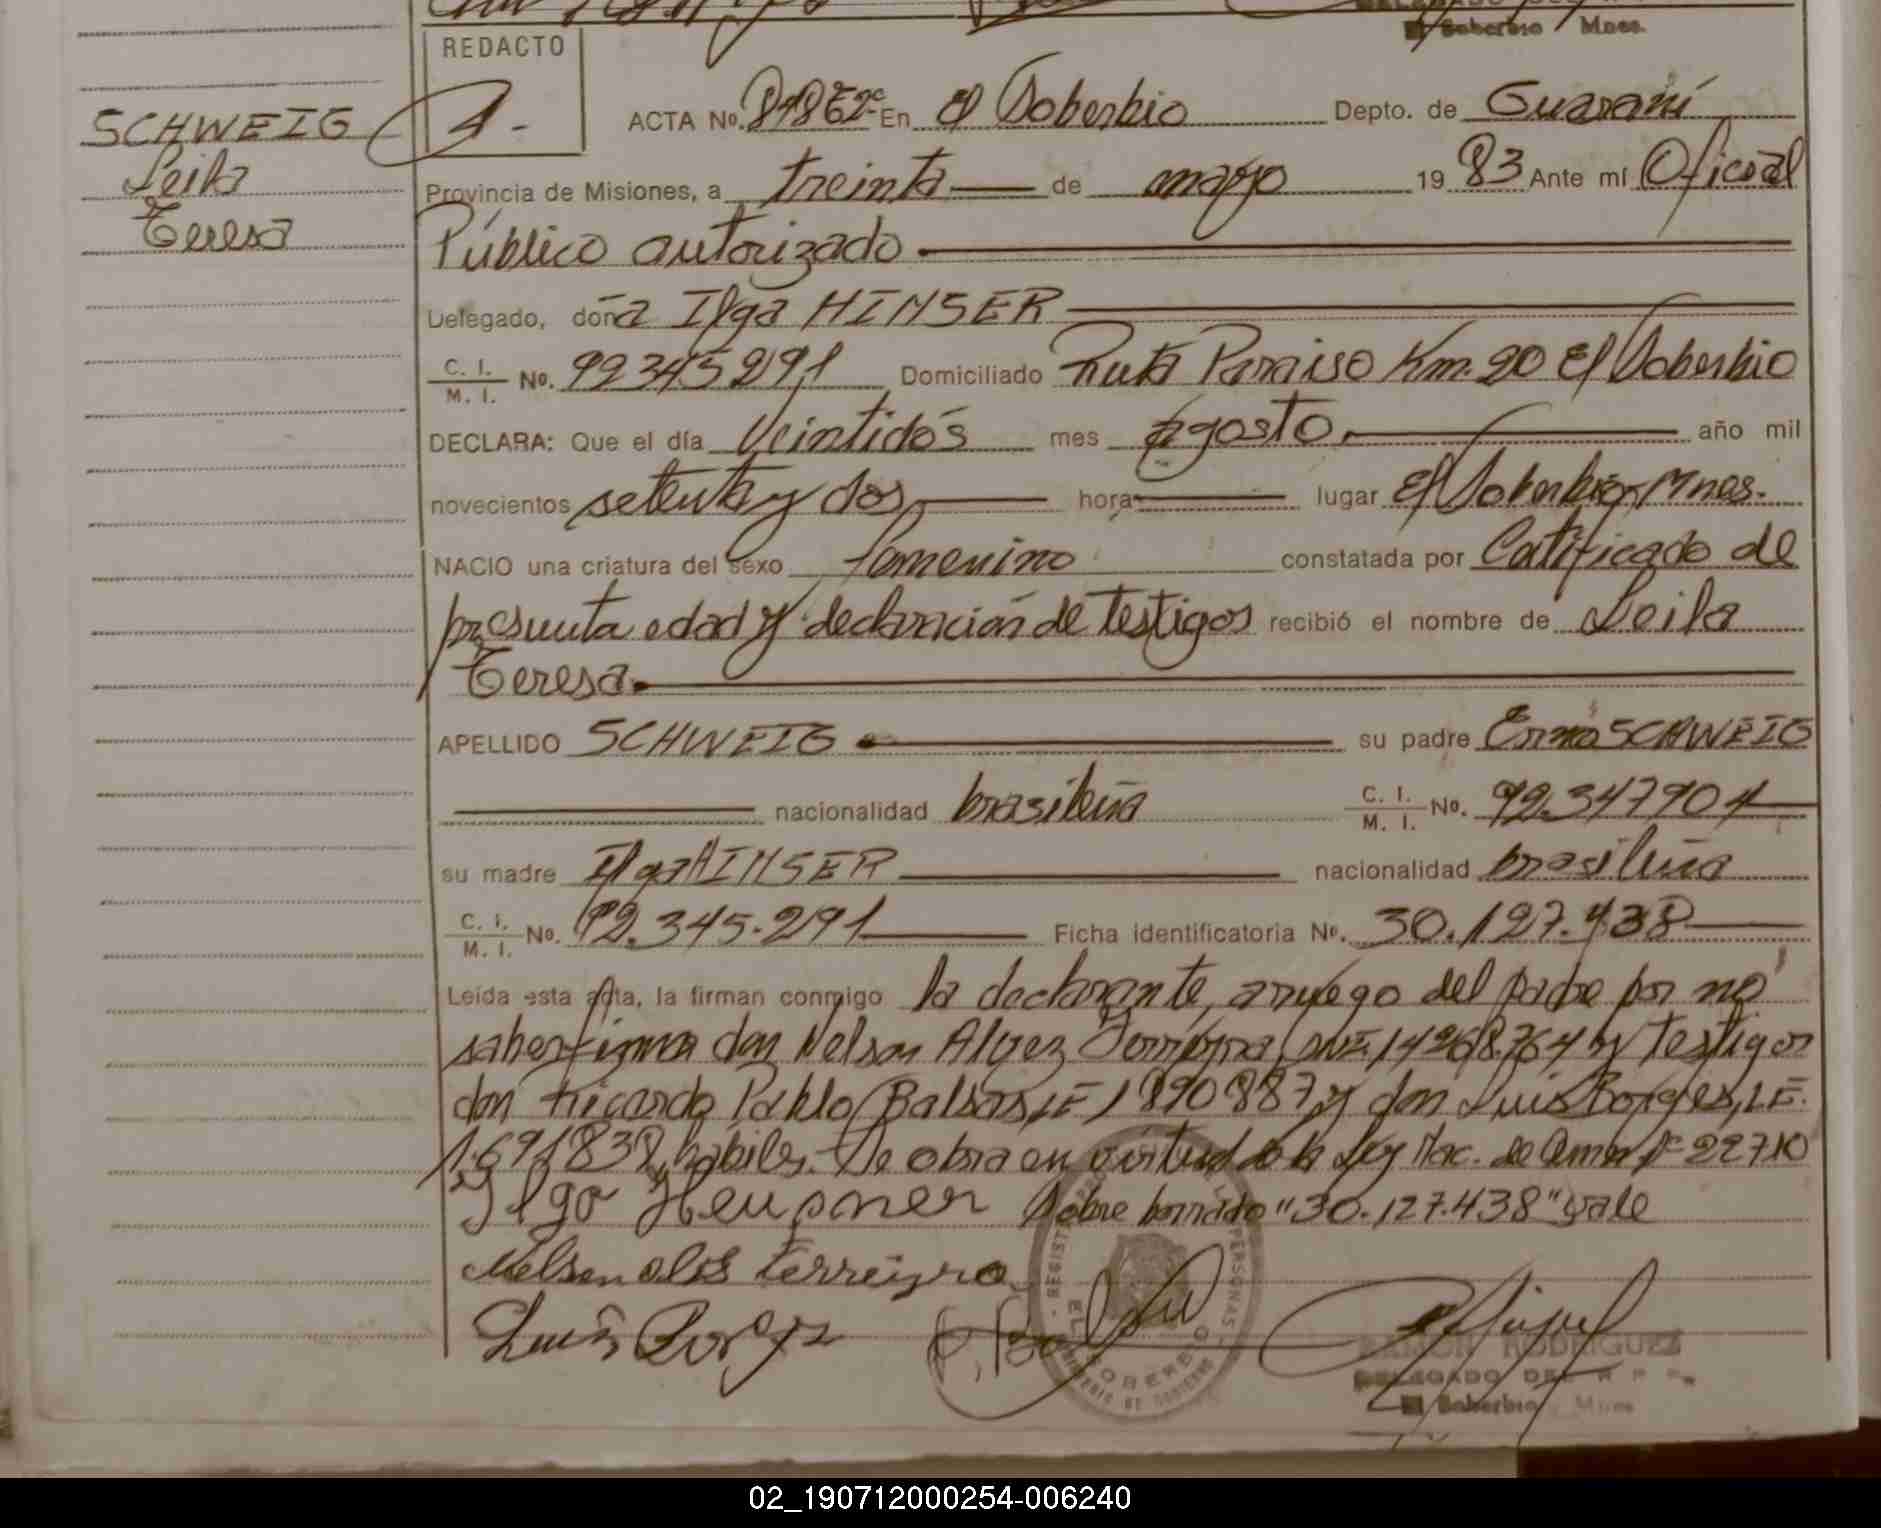 El Soberbio Mnes.
REDACTO
1-
SCHWEIG
Leila
Teresa
ACTA No. En El Soberbio Depto. de Guaraní
Provincia de Misiones, a treinta de mayo 1983 Ante mí Oficial
Público autorizado
Delegado, doña Ilga HINSER
C. I. M. I. No. 92345291 Domiciliado Ruta Paraiso Km. 20 El Soberbio
DECLARA: Que el día Veintidós mes Agosto año mil
novecientos setenta y dos hora lugar El Soberbio-Mnes.
NACIO una criatura del sexo femenino constatada por Cetificado de
presunta edad y declaración de testigos recibió el nombre de Leila
Teresa
APELLIDO SCHWEIG su padre SCHWEIG
nacionalidad brasileña C. I. M. I. No. 92.347904
su madre Ilga HINSER nacionalidad brasileña
C. I. M. I. No. 92.345.291 Ficha identificatoria No. 30.127.438
Leída esta acta, la firman conmigo la declarante, a ruego del padre por no
saber firmar don Nelson Alvez Ferreyra, y testigos
don Ricardo Pablo LE 1890887 y don Luis Borges, LE.
1.691838, habiles. Se obra en virtud de la Ley Nac. de Amn Nº 22710
Ilga Sobre borrado "30.127.438" vale
Nelson Ferreyra
Luis Borges
REGISTRO PROVINCIAL DE LAS PERSONAS
EL SOBERBIO
MINISTERIO DE GOBIERNO
RAMON RODRIGUEZ
DELEGADO DEL R P P
El Soberbio Mnes
02_190712000254-006240